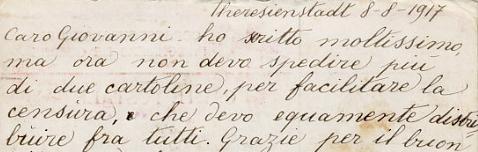 Theresienstadt 8-8-1917
Caro Giovanni. ho scritto moltissimo,
ma ora non devo spedire più
di due cartoline, per facilitare la
censura, e che devo equamente distri
buire fra tutti. Grazie per il buon